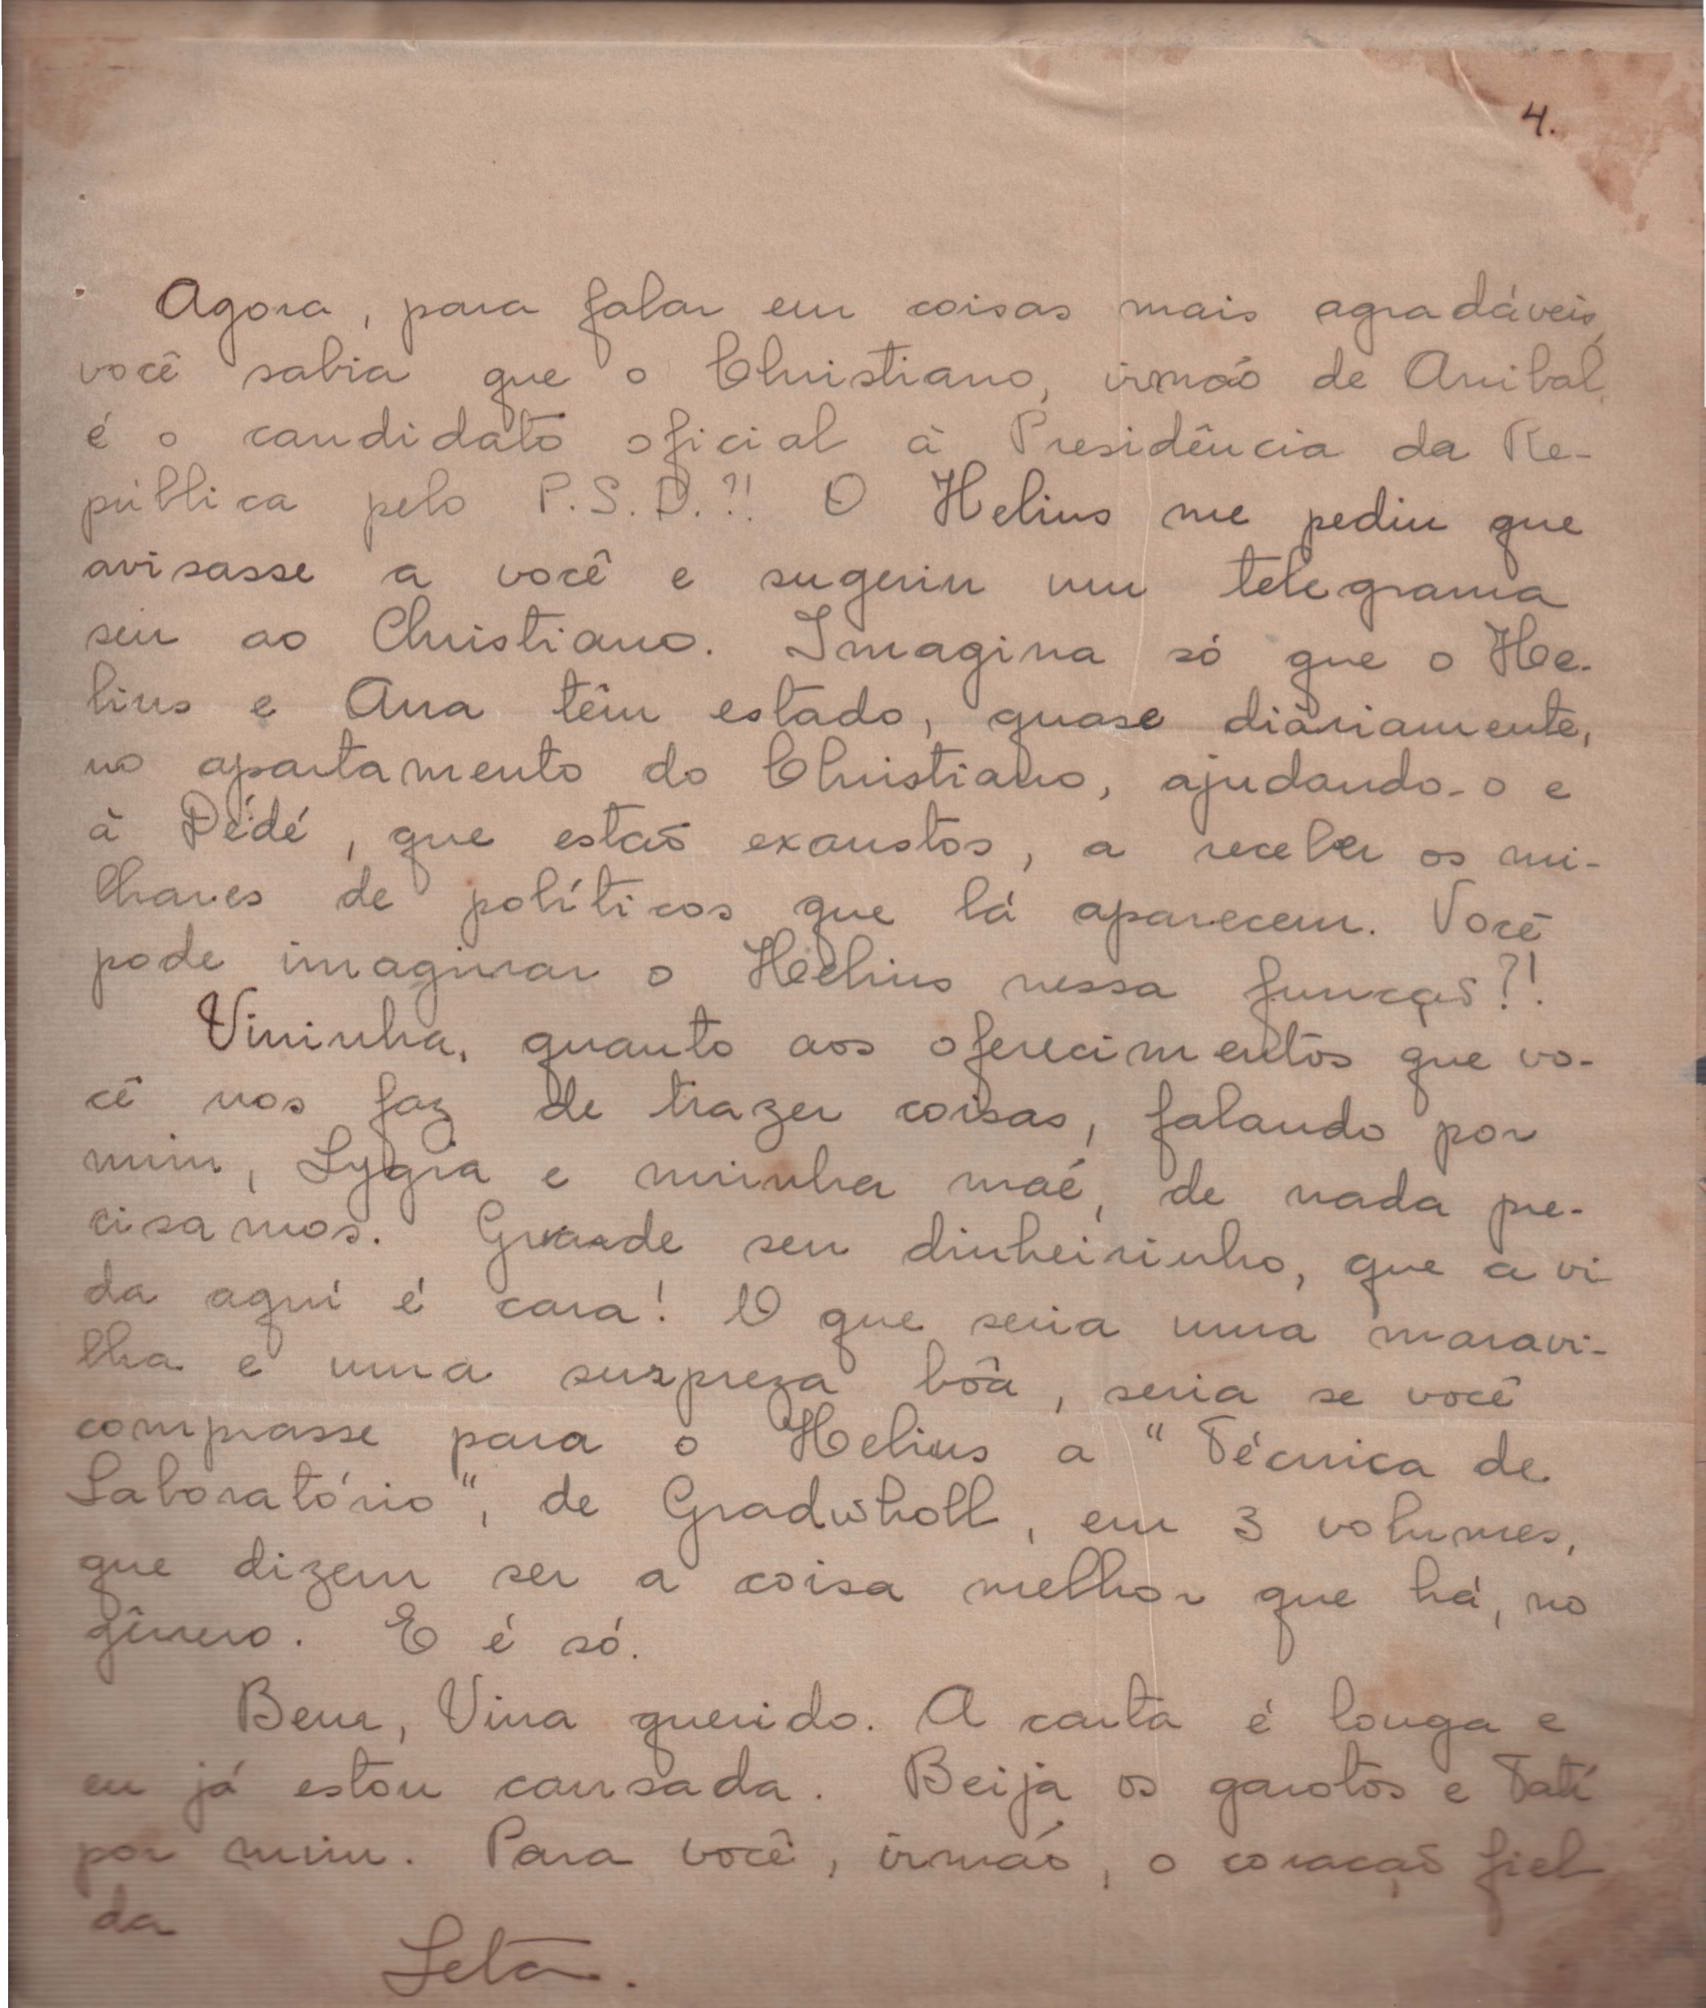 4.
Agora, para falar em coisas mais agradáveis,
você sabia que o Christiano, irmão de Anibal,
é o candidato oficial à Presidência da Re-
pública pelo P.S.D.?!! O Helius me pediu que
avisasse a você e sugeriu um telegrama
seu ao Christiano. Imagina só que o He-
lius e Ana têm estado, quase diàriamente,
no apartamento do Christiano, ajudando-o e
à Dédé, que estão exaustos, a receber os mi-
lhares de políticos que lá aparecem. Você
pode imaginar o Helius nessa função?!.
Vininha, quanto aos oferecimentos que vo-
cê nos faz de trazer coisas, falando por
mim, Lygia e minha mãe, de nada pre-
cisamos. Guarde seu dinheirinho, que a vi
da aquí é cara! O que seria uma maravi-
lha e uma surpreza bôa, seria se você
comprasse para o Helius a "Técnica de
Laboratório", de Gradwholl, em 3 volumes,
que dizem ser a coisa melhor que há, no
gênero. E é só.
Bem, Vina querido. A carta é longa e
eu já estou cansada. Beija os garotos e Tatí
por mim. Para você, irmão, o coração fiel
da
Leta.